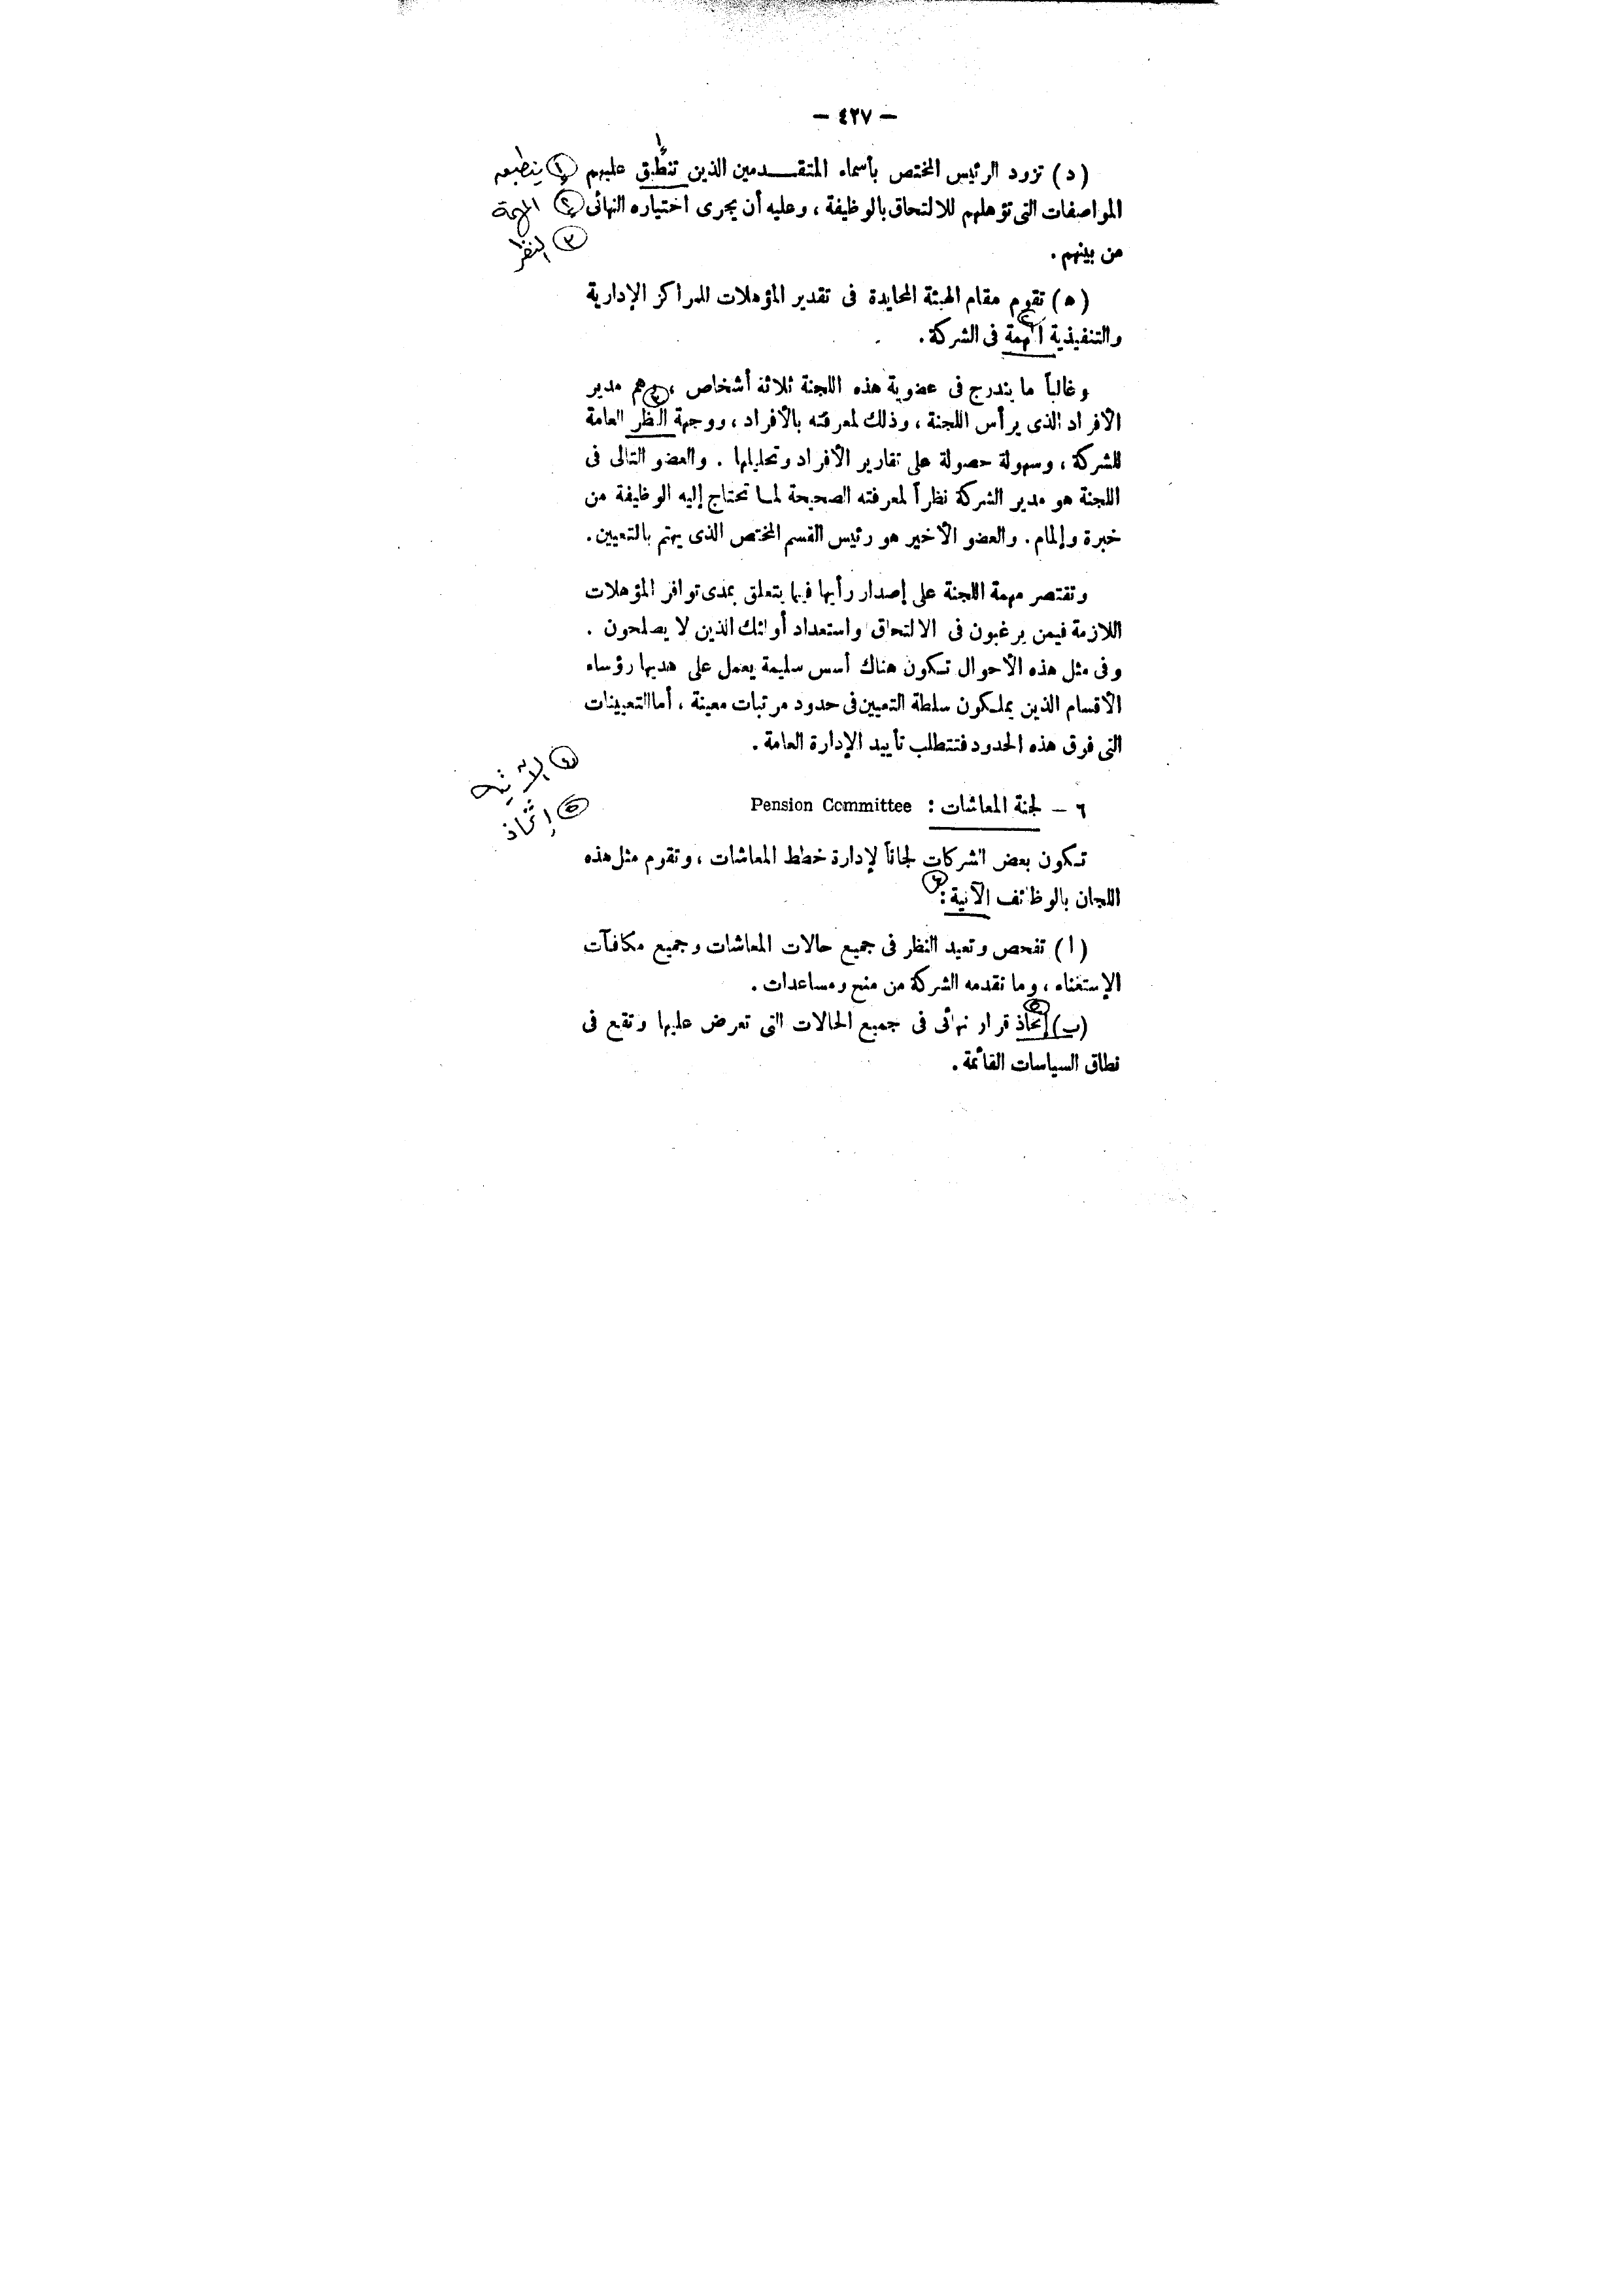 — ٤٢٧ —
(د) تزود الرئيس المختص بأسماء المتقـدمين الذين تنطبق عليهم ① ينطبق
المواصفات التى تؤهلهم للالتحاق بالوظيفة ، وعليه أن يجرى اختياره النهائى ② المهمة
من بينهم . ③ النظر
(ه) تقوم مقام الهيئة المحايدة فى تقدير المؤهلات للمراكز الإدارية
والتنفيذية المهمة فى الشركة .
وغالباً ما يندرج فى عضوية هذه اللجنة ثلاثة أشخاص ، وهم مدير
الأفراد الذى يرأس اللجنة ، وذلك لمعرفته بالأفراد ، ووجهة النظر العامة
للشركة ، وسهولة حصولة على تقارير الأفراد وتحليلها . والعضو التالى فى
اللجنة هو مدير الشركة نظراً لمعرفته الصحيحة لما تحتاج إليه الوظيفة من
خبرة وإلمام . والعضو الأخير هو رئيس القسم المختص الذى يهتم بالتعيين .
وتقتصر مهمة اللجنة على إصدار رأيها فيها يتعلق بمدى توافر المؤهلات
اللازمة فيمن يرغبون فى الالتحاق واستعداد أولئك الذين لا يصلحون .
وفى مثل هذه الأحوال تكون هناك أسس سليمة يعمل على هديها رؤساء
الأقسام الذين يملكون سلطة التعيين فى حدود مرتبات معينة ، أما التعيينات
التى فرق هذه الحدود فتتطلب تأييد الإدارة العامة .
④ الآتية
٦ — لجنة المعاشات : Pension Committee ⑤ إتخاذ
تكون بعض الشركات لجاناً لإدارة خطط المعاشات ، وتقوم مثل هذه
اللجان بالوظائف الآتية :
(ا) تفحص وتعيد النظر فى جميع حالات المعاشات وجميع مكافآت
الإستغناء ، وما تقدمه الشركة من منح ومساعدات .
(ب) إتخاذ قرار نهائى فى جميع الحالات التى تعرض عليها وتقع فى
نطاق السياسات القائمة .